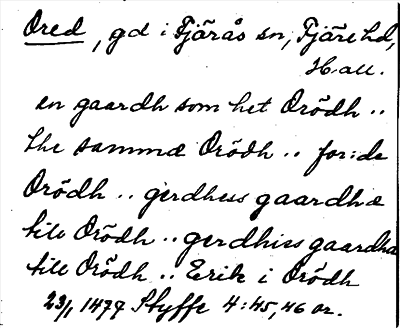 Ored, gd i Fjärås sn, Fjäre hd,
Hall.
en gaardh som het Orödh ..
the sammæ Orödh .. for:de
Orödh .. gerdhess gaardhæ
tile Orödh .. gerdhiss gaardha
tile Orödh .. Erik i Orödh
23/1 1479 Styffe 4:45, 46 or.